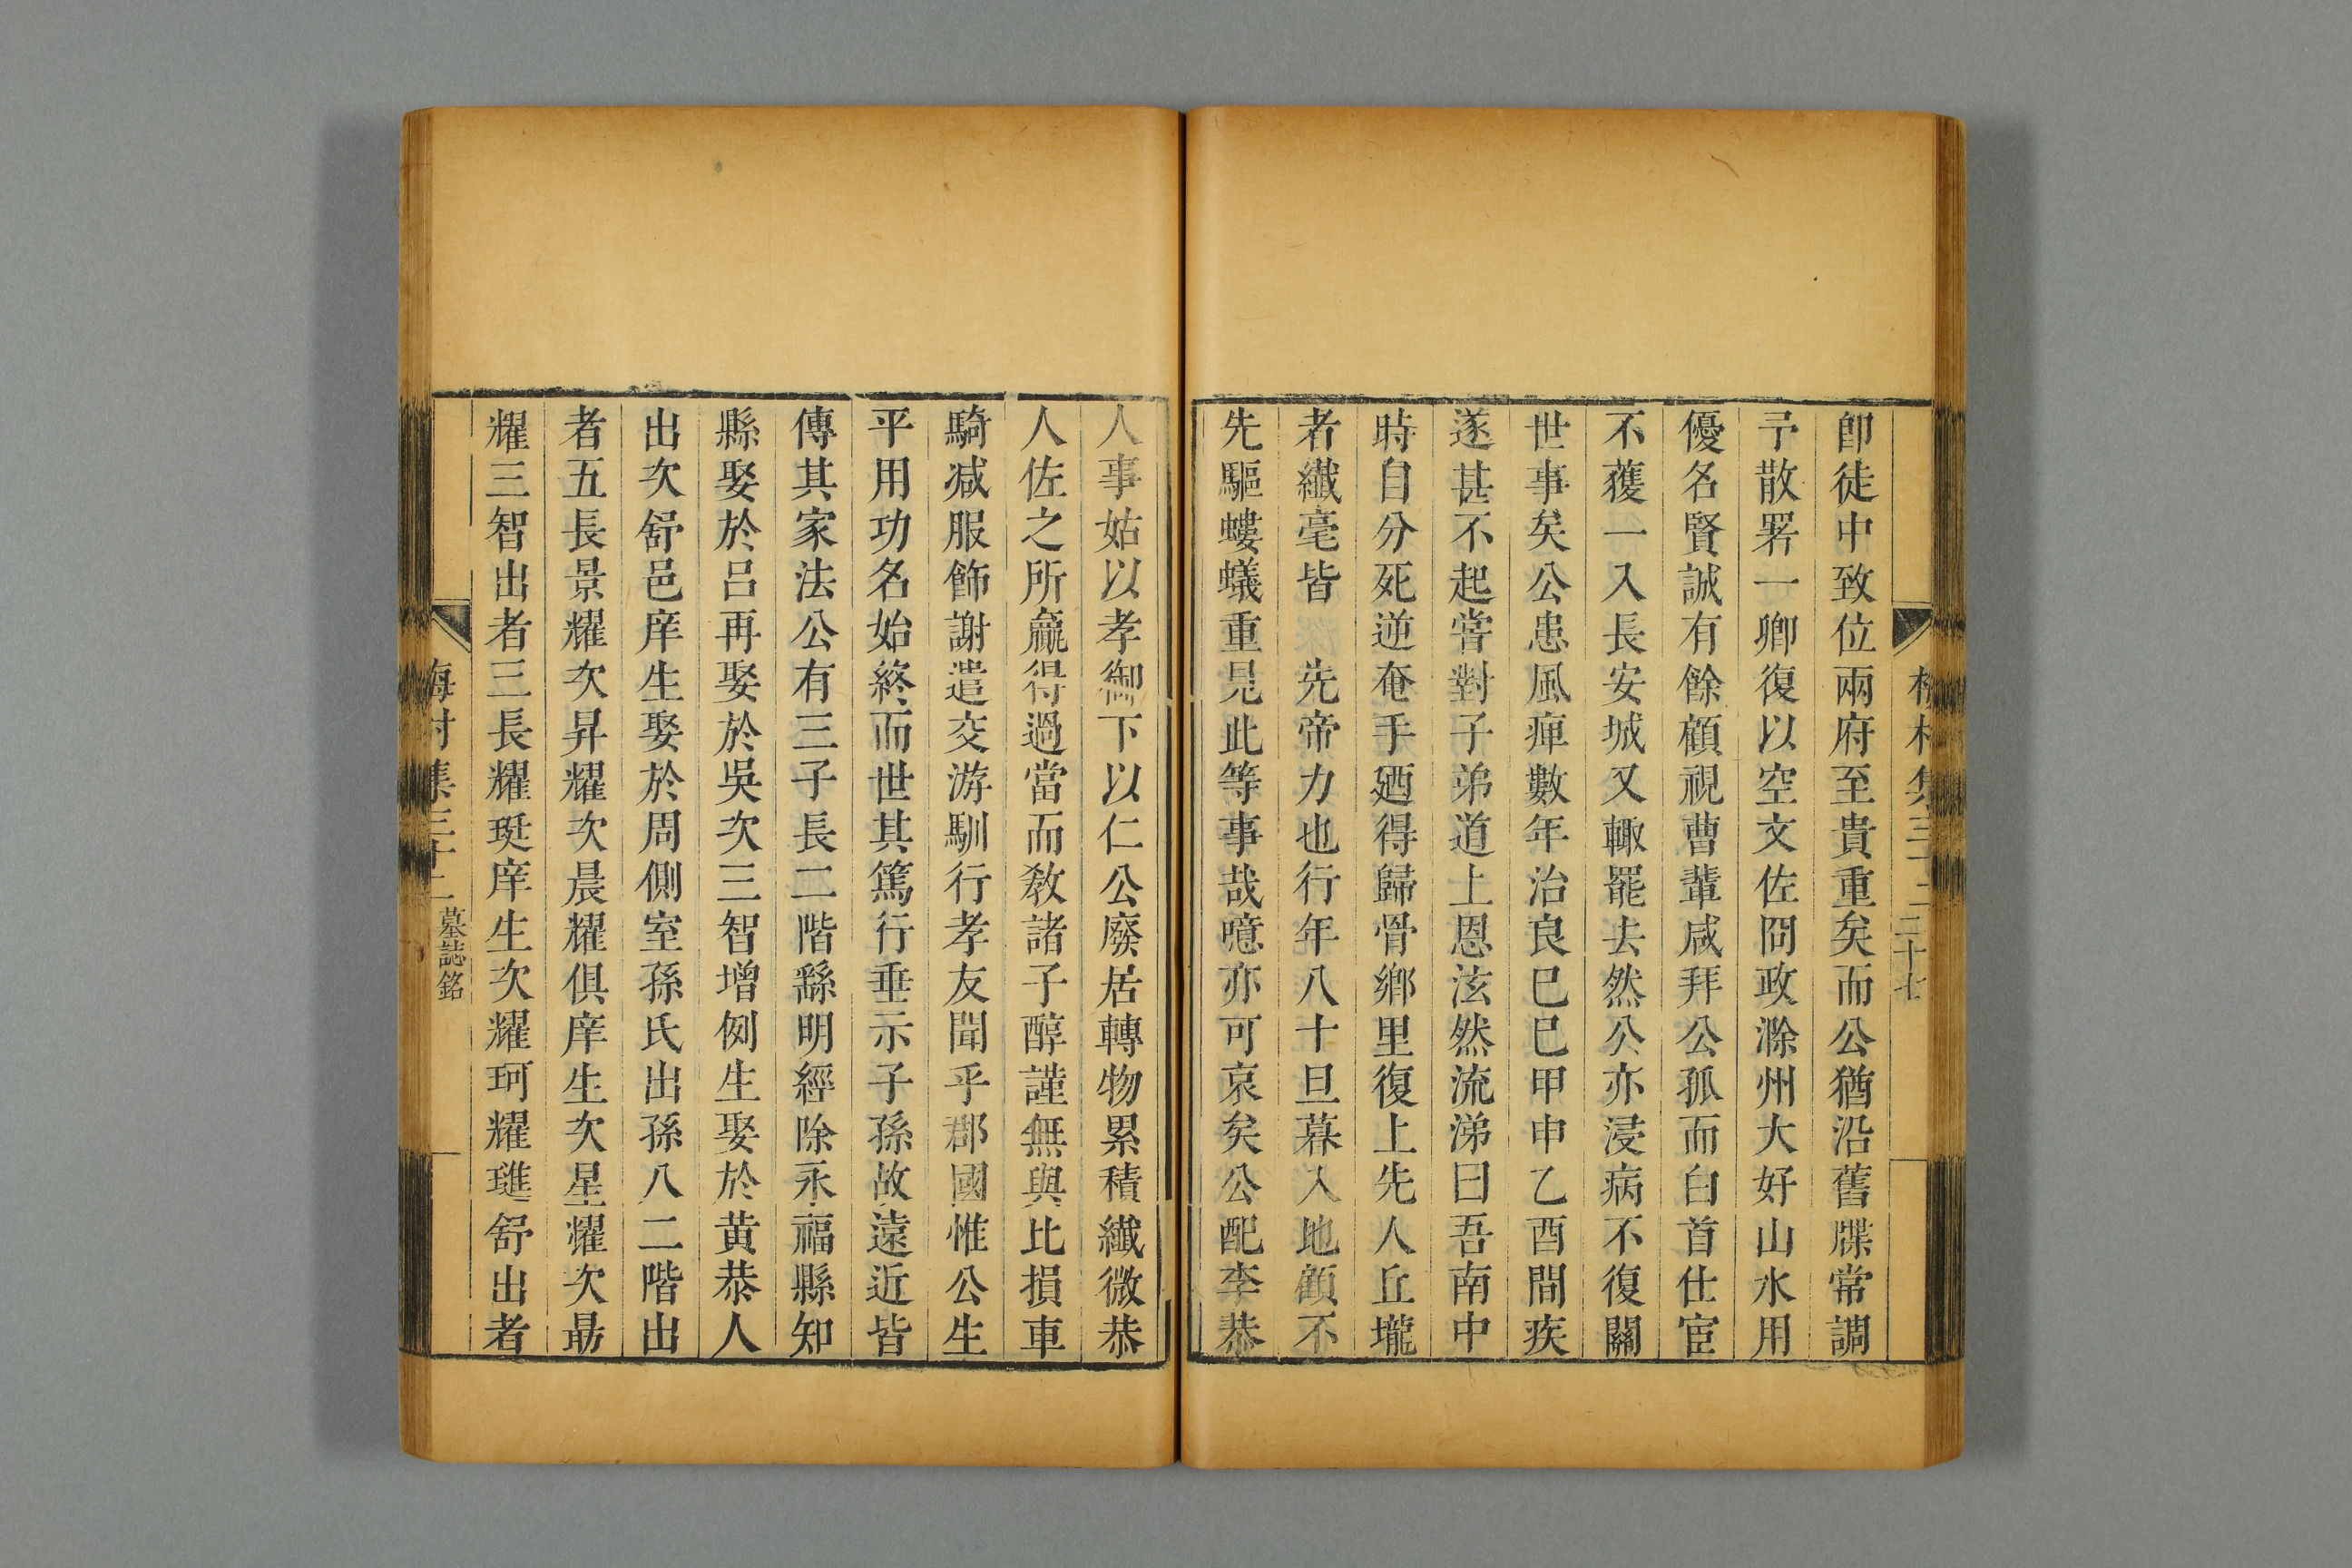 卽徒中致位兩府至貴重矣而公猶沿舊牒常調
予散署一卿復以空文佐冏政滁州大好山水用
優名賢誠有餘顧視曹輩咸拜公孤而白首仕宦
不獲一入長安城又輙罷去然公亦浸病不復關
世事矣公患風痺數年治良巳巳甲申乙酉間疾
遂甚不起嘗對子弟道上恩泫然流涕曰吾南中
時自分死逆奄手廼得歸骨鄉里復上先人丘壠
者纖毫皆 先帝力也行年八十旦暮入地顧不
先驅螻蟻重見此等事哉噫亦可哀矣公配李恭
人事姑以孝御下以仁公廢居轉物累積纖微恭
人佐之所贏得過當而教諸子醇謹無與比損車
騎减服飾謝遣交游馴行孝友聞乎郡國惟公生
平用功名始終而世其篤行垂示子孫故遠近皆
傳其家法公有三子長二階繇明經除永福縣知
縣娶於呂再娶於吳次三智增例生娶於黃恭人
出次舒邑庠生娶於周側室孫氏出孫八二階出
者五長景耀次昇耀次晨耀俱庠生次星耀次最
耀三智出者三長耀珽庠生次耀珂耀璡舒出者
梅村集三十二 墓誌銘
三十七